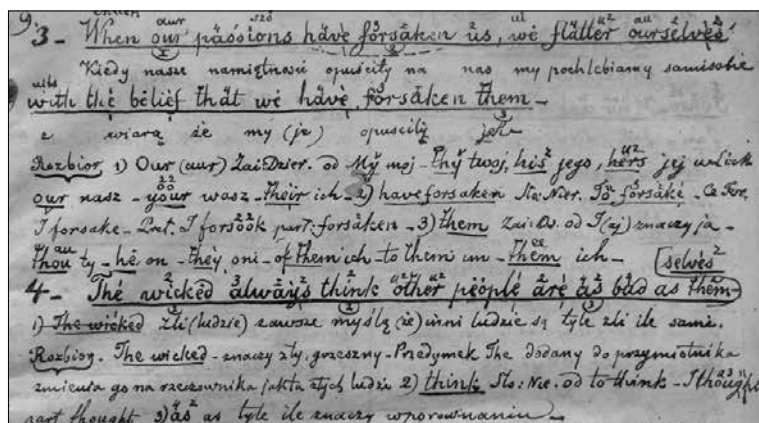 9.
3 - When our passions have forsaken us, we flatter ourselves
Kiedy nasze namiętności opuściły na nas my pochlebiamy samisobie
with the belief that we have forsaken them -
z wiarą że my (je) opuściły
Rozbior 1) Our (aur) Zai. Dzier. od My moj - thy twoj, his jego, hers jej
our nasz - your wasz - their ich - 2) have forsaken Sło. Nier. To forsake -
I forsake - Pret. I forsook part. forsaken - 3) them od I (aj) znaczy ja -
thou ty - he on - they oni - of them ich - to them im - Them ich - selves
4 - The wicked always think other people are as bad as them -
1) The wicked źli (ludzie) zawsze myślą (że) inni ludzie są tyle źli ile sami.
Rozbior. The wicked - znaczy zły, grzeszny - Przedymek The dodany do przymiotnika
zmienia go na rzeczownika jakta złych ludzi 2) think Sło: Nie. od to think - I thought
part thought 3) as as tyle ile znaczy w porownaniu -